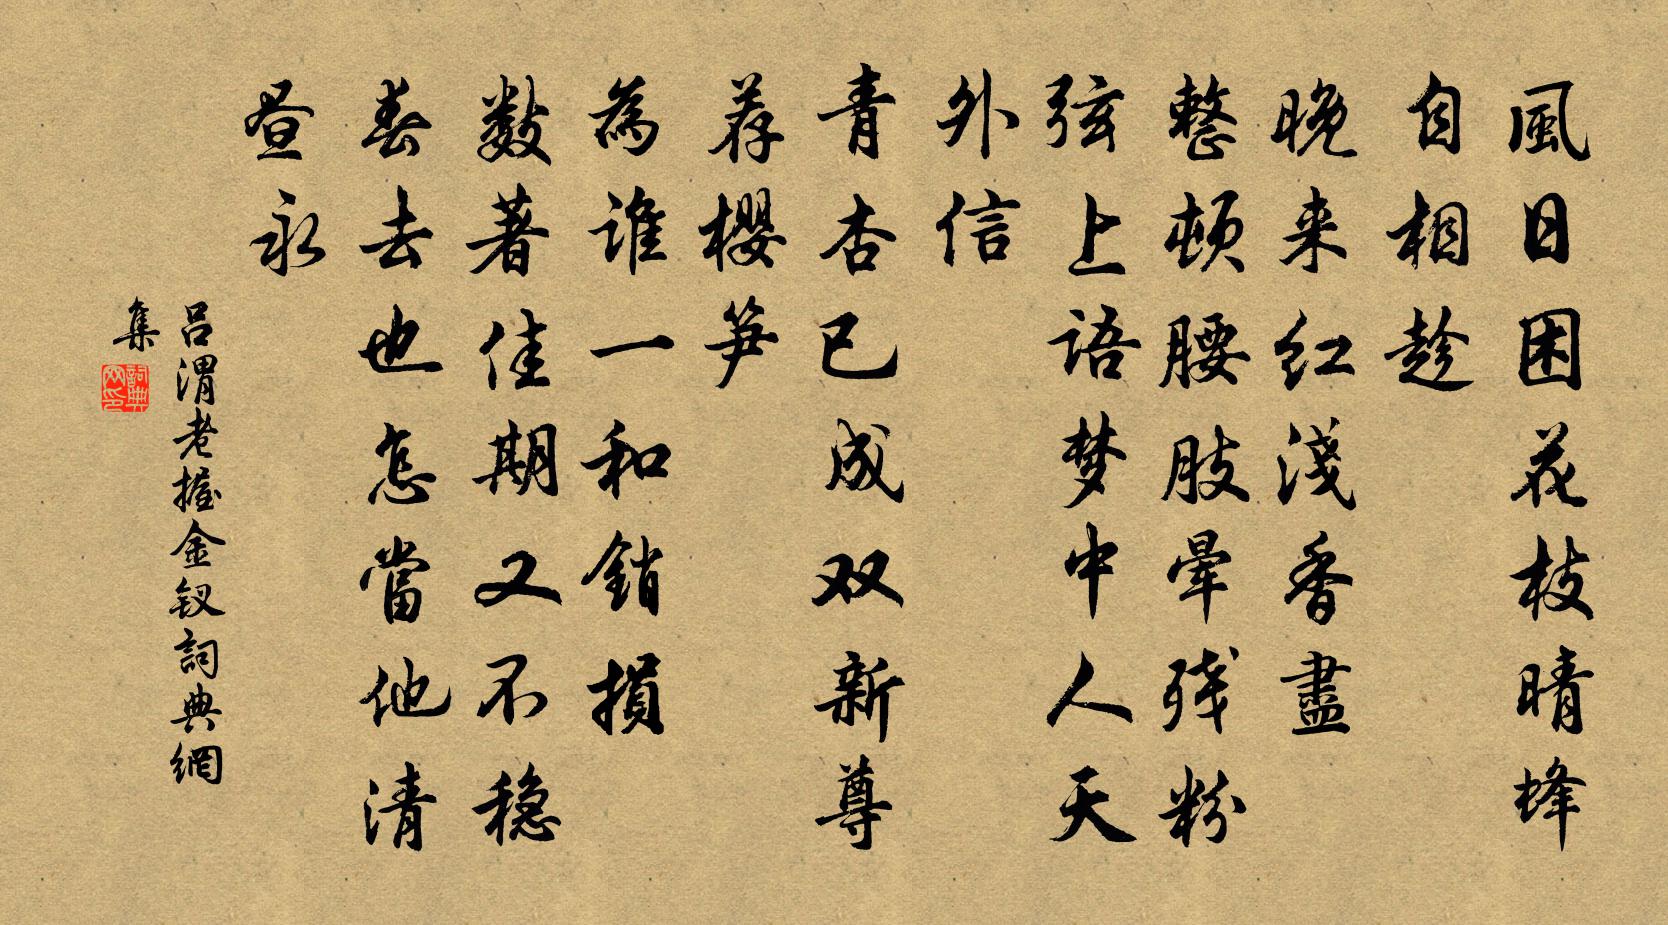 風日困花枝晴蜂
自相趁
晚来红淺香盡
整頓腰肢暈残粉
弦上語梦中人天
外信
青杏已成双新尊
荐櫻笋
為谁一和銷損
數著佳期又不稳
春去也怎當他清
昼永
吕渭老握金钗詞典網
集
詞典
网印